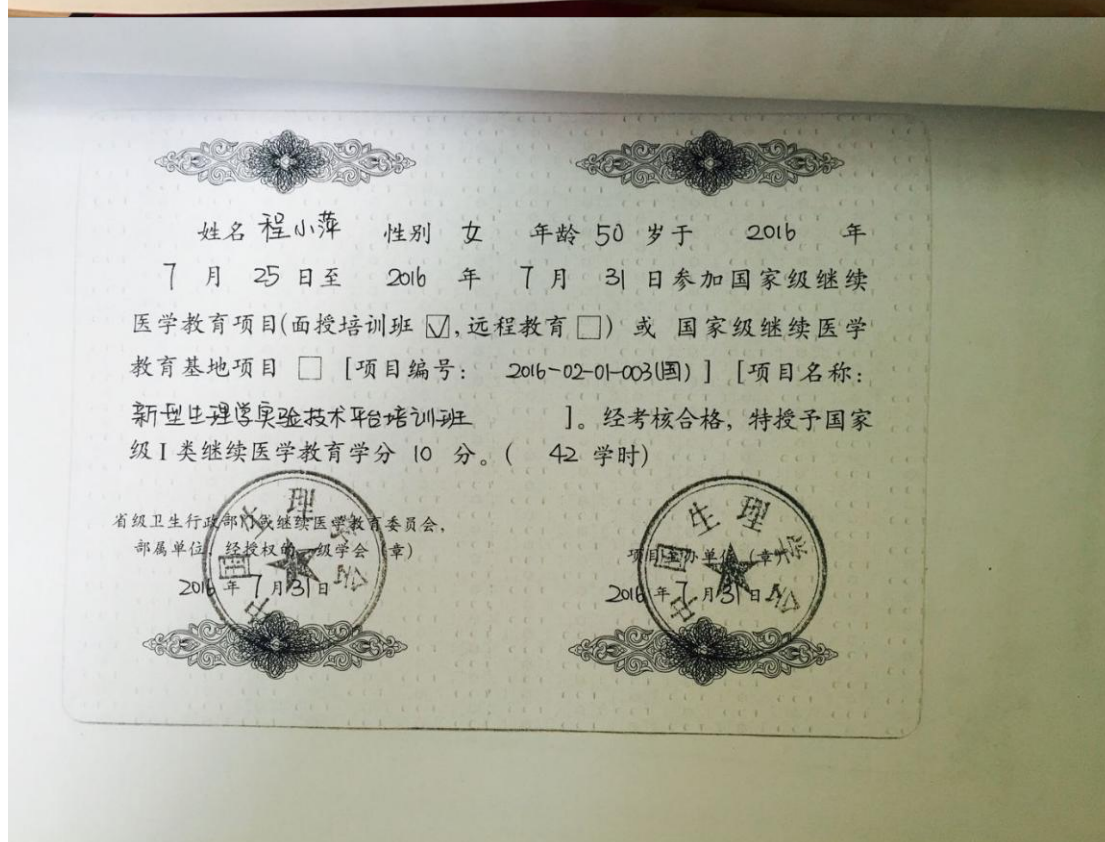 姓名 程小萍 性别 女 年龄 50 岁于 2016 年
7 月 25 日至 2016 年 7 月 31 日参加国家级继续
医学教育项目(面授培训班 ☑,远程教育 □) 或 国家级继续医学
教育基地项目 □ [项目编号: 2016-02-01-003(国) ] [项目名称:
新型生理学实验技术平台培训班 ]。经考核合格, 特授予国家
级 I 类继续医学教育学分 10 分。( 42 学时)
省级卫生行政部门或继续医学教育委员会,
部属单位、经授权的一级学会 (章)
2016 年 7 月 31 日
中国生理学会
项目主办单位 (章)
2016 年 7 月 31 日
中国生理学会